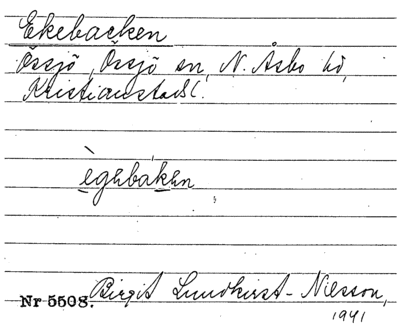 Ekebacken
Össjö, Össjö sn, N. Åsbo hd,
Kristianstads l.
ègəbákən
Nr 5508. Birgit Lundkvist-Nilsson,
1941